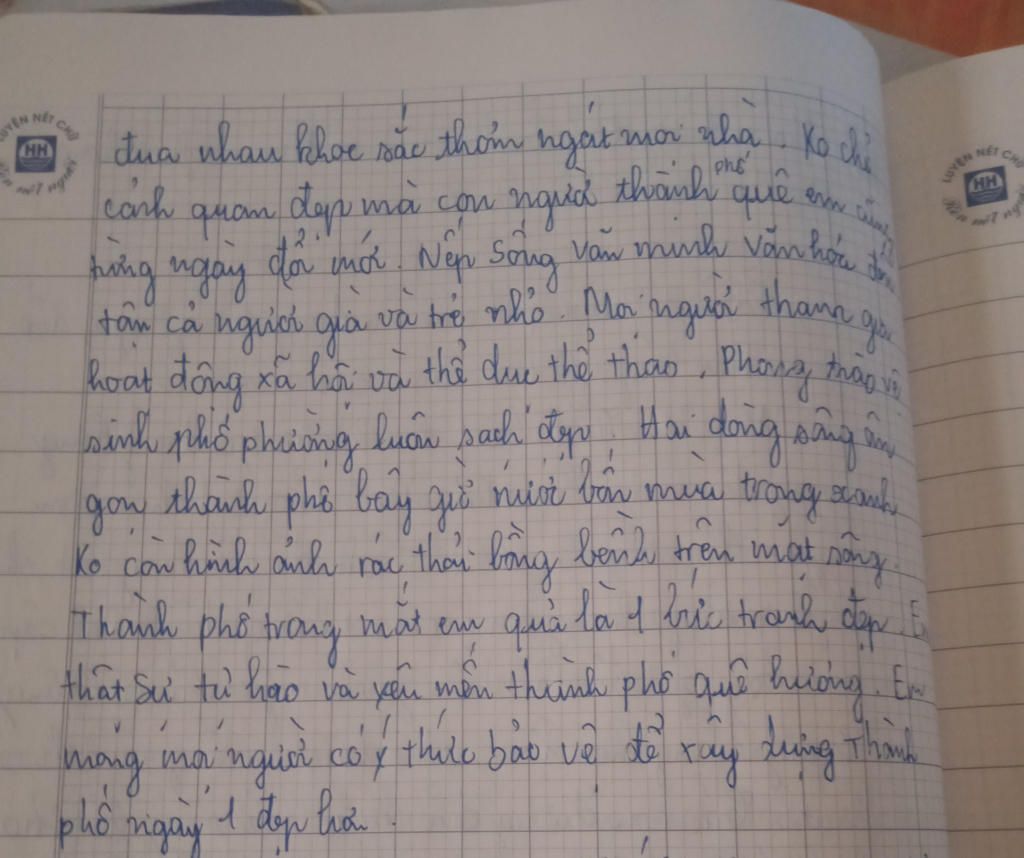 LUYỆN NÉT CHỮ
HH
Rèn nết người
đua nhau khoe sắc thơm ngát mọi nhà. Ko chỉ
cảnh quan đẹp mà con người thành phố quê em cũng
từng ngày đổi mới. Nếp sống văn minh văn hóa đến
tân cả người già và trẻ nhỏ. Mọi người tham gia
hoạt động xã hội và thể dục thể thao. Phong trào vệ
sinh phố phường luôn sạch đẹp. Hai dòng sông ôm
gọn thành phố bây giờ nước bốn mùa trong xanh
Ko còn hình ảnh rác thải bồng bềnh trên mặt sông.
Thành phố trong mắt em quả là 1 bức tranh đẹp. Em
thật sự tự hào và yêu mến thành phố quê hương. Em
mong mọi người có ý thức bảo vệ để xây dựng Thành
phố ngày 1 đẹp hơn.
LUYỆN NÉT CHỮ
HH
Rèn nết người